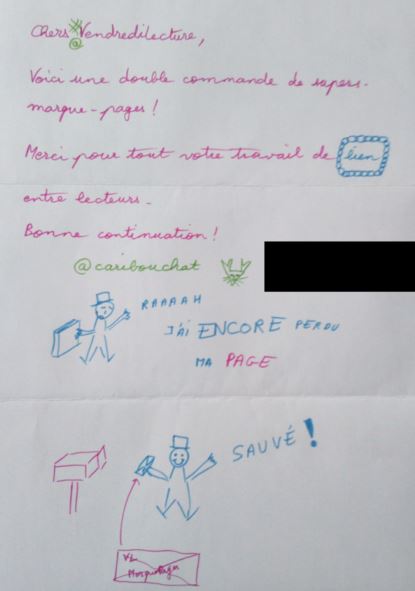 Chers #Vendredilecture,
@
Voici une double commande de supers
marque-pages !
Merci pour tout votre travail de lien
entre lecteurs.
Bonne continuation !
@caribouchat
RAAAAH
J'AI ENCORE PERDU
MA PAGE
SAUVÉ !
VL
Marque Pages